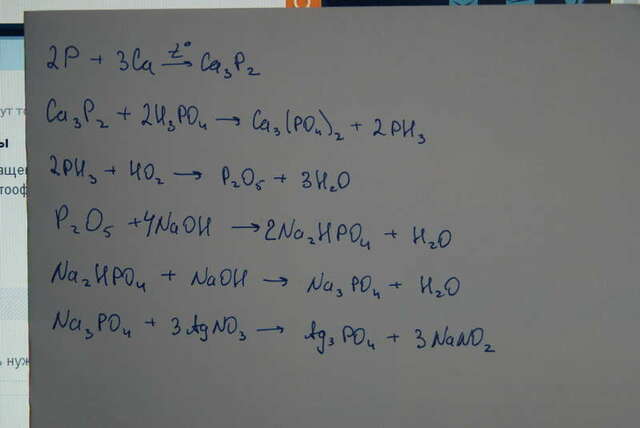 2P + 3Ca t°→ Ca₃P₂
Ca₃P₂ + 2H₃PO₄ → Ca₃(PO₄)₂ + 2PH₃
2PH₃ + 4O₂ → P₂O₅ + 3H₂O
P₂O₅ + 4NaOH → 2Na₂HPO₄ + H₂O
Na₂HPO₄ + NaOH → Na₃PO₄ + H₂O
Na₃PO₄ + 3AgNO₃ → Ag₃PO₄ + 3NaNO₂